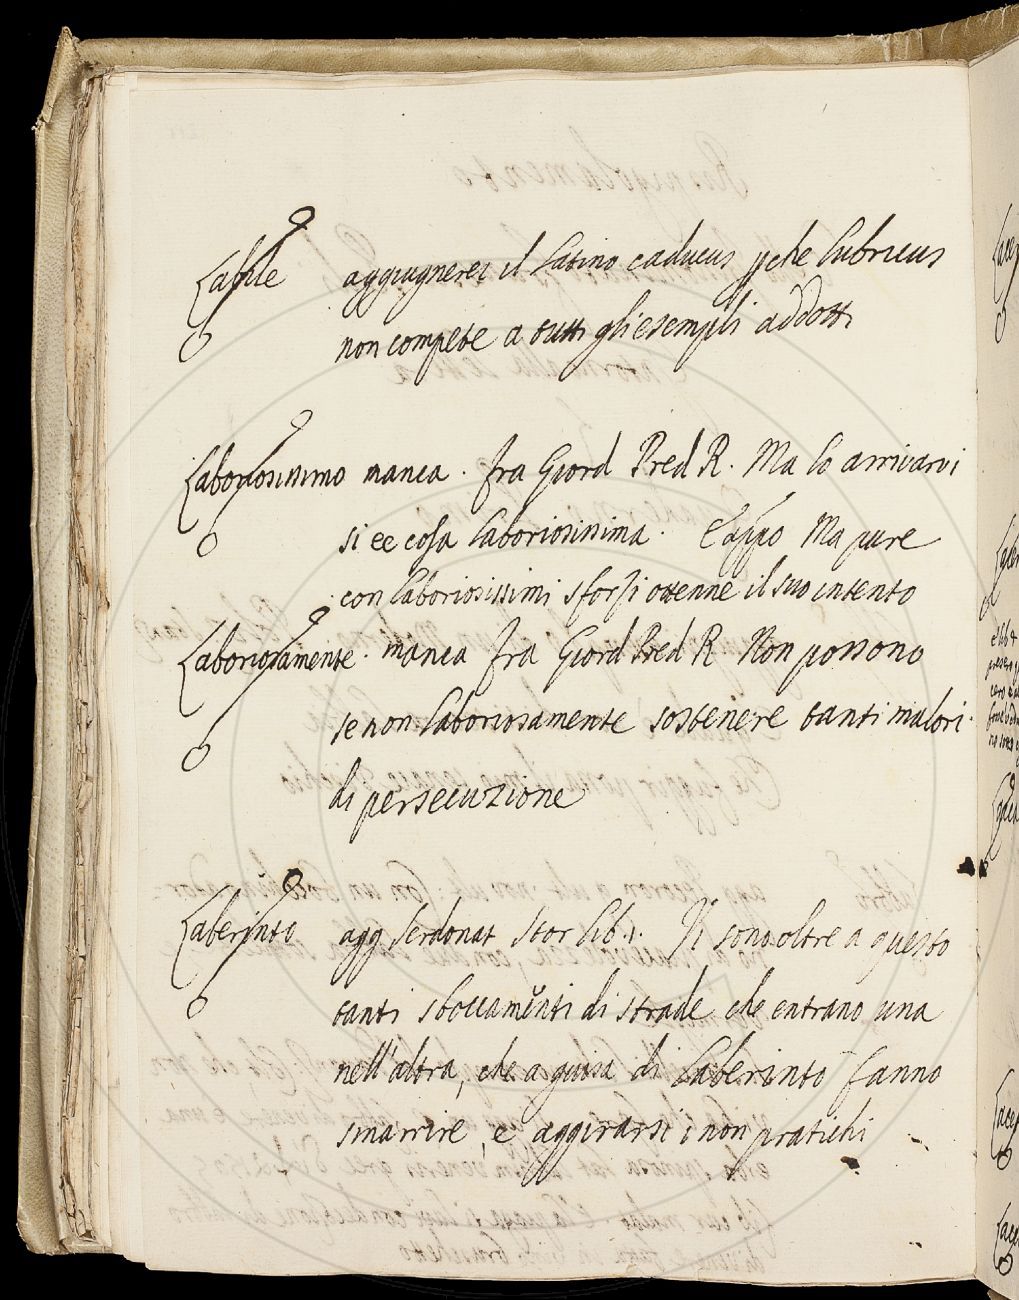 Labile aggiugnerei il latino caducus pche lubricus
non compete a tutti gli esempli addotti
Laboriosissimo manca. fra Giord Pred R. Ma lo arrivarvi
si ee cosa laboriosissima. E appo Ma pure
con laboriosissimi sforzi ottenne il suo intento
Laboriosamente. manca fra Giord Pred R. Non possono
se non laboriosamente sostenere tanti malori
di persecuzione
Laberinto agg Serdonat Stor lib. 1. Vi sono oltre a questo
tanti sboccamenti di strade che entrano una
nell'altra, che a guisa di Laberinto fanno
smarrire, e aggirarsi i non pratichi